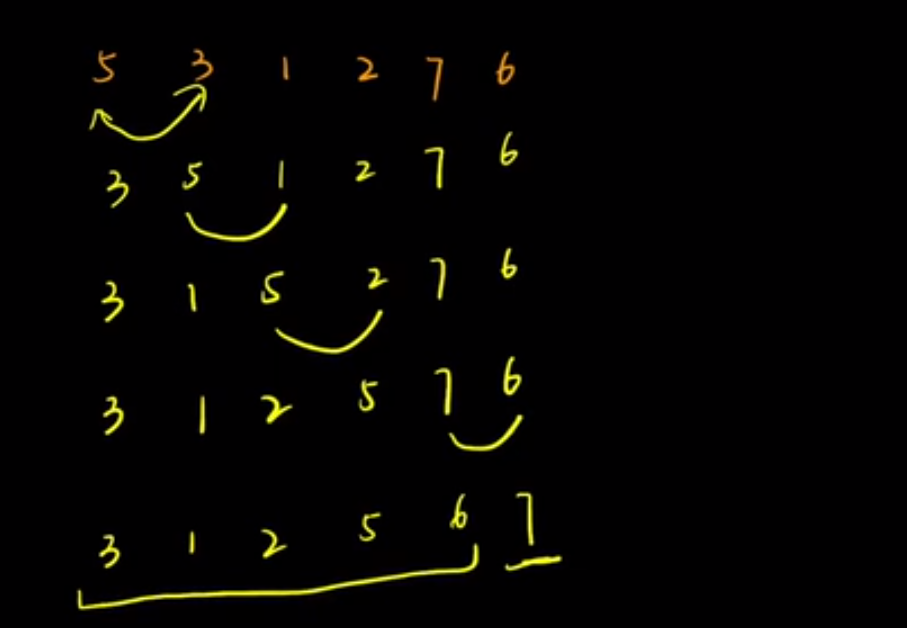 5 3 1 2 7 6
3 5 1 2 7 6
3 1 5 2 7 6
3 1 2 5 7 6
3 1 2 5 6 7